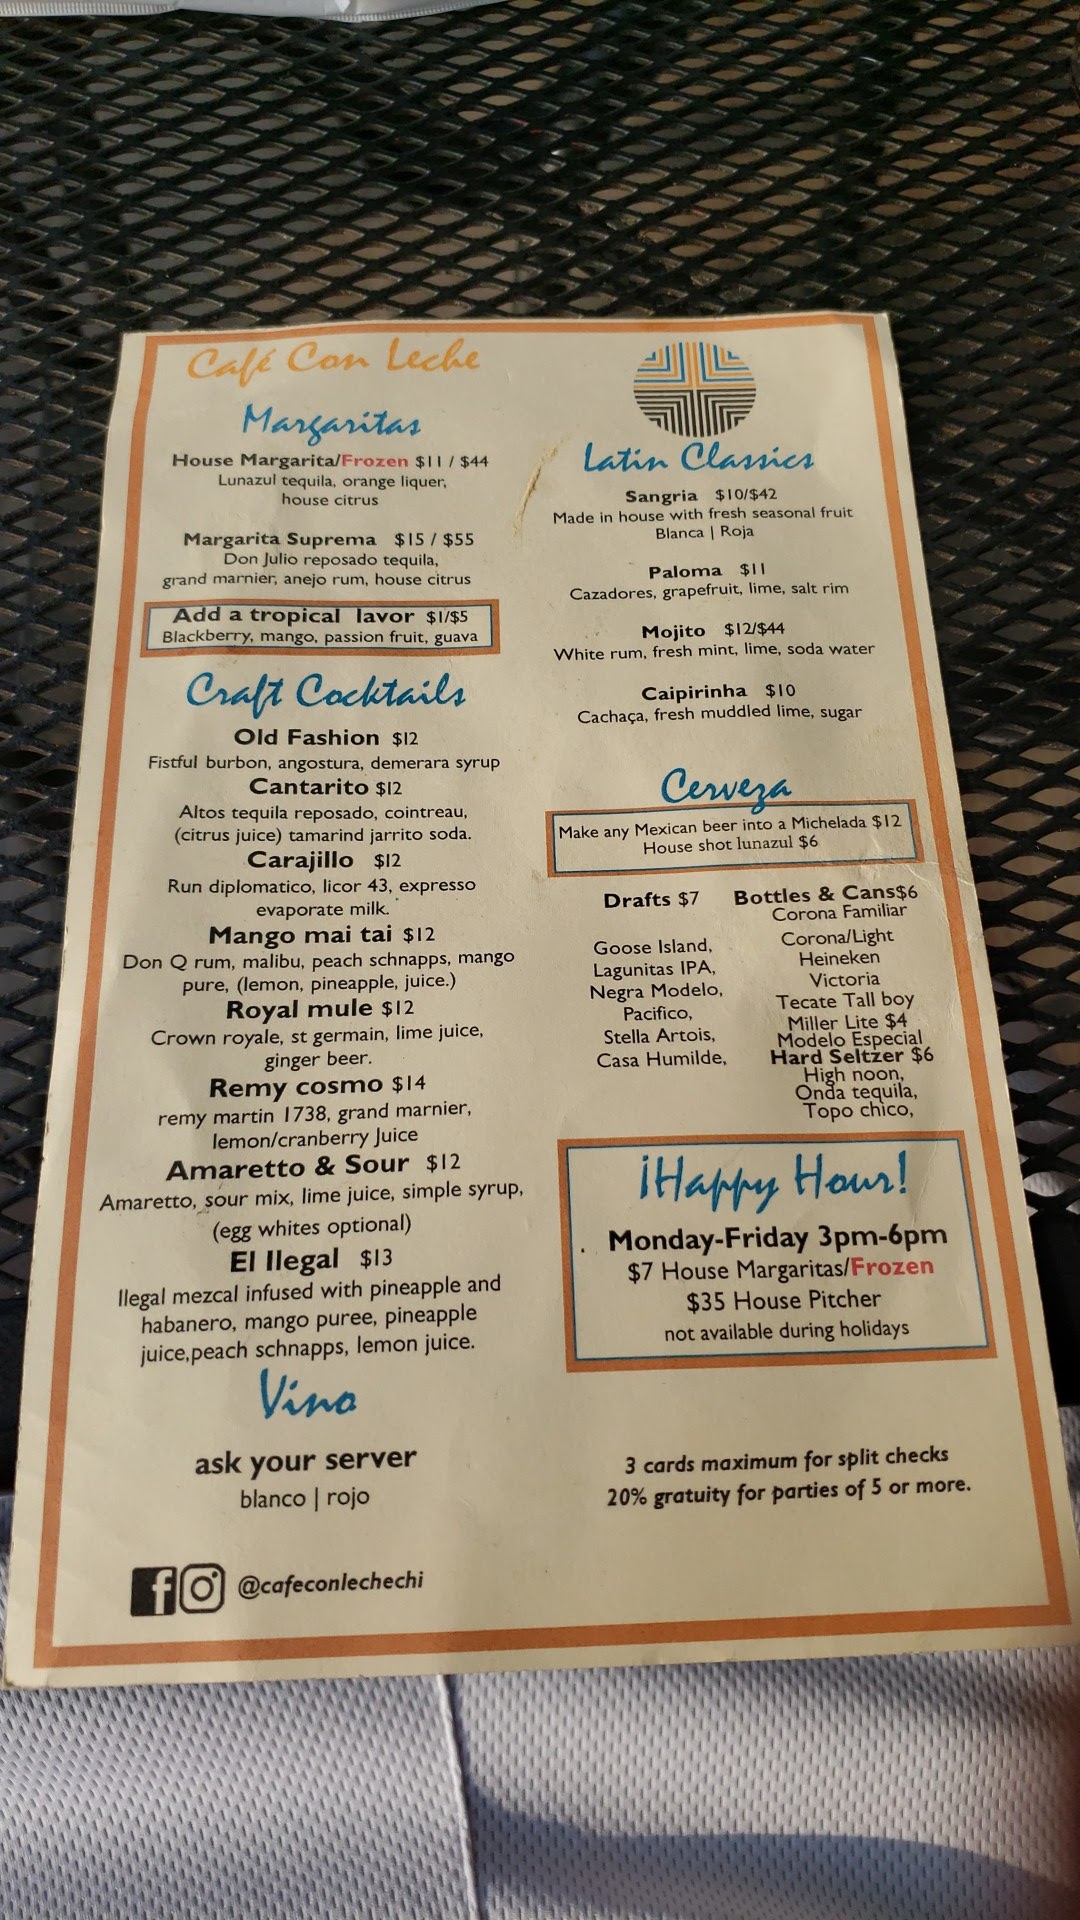 Café Con Leche
Margaritas
House Margarita/Frozen $11 / $44
Lunazul tequila, orange liquer,
house citrus
Margarita Suprema $15 / $55
Don Julio reposado tequila,
grand marnier, anejo rum, house citrus
Add a tropical lavor $1/$5
Blackberry, mango, passion fruit, guava
Craft Cocktails
Old Fashion $12
Fistful burbon, angostura, demerara syrup
Cantarito $12
Altos tequila reposado, cointreau,
(citrus juice) tamarind jarrito soda.
Carajillo $12
Run diplomatico, licor 43, expresso
evaporate milk.
Mango mai tai $12
Don Q rum, malibu, peach schnapps, mango
pure, (lemon, pineapple, juice.)
Royal mule $12
Crown royale, st germain, lime juice,
ginger beer.
Remy cosmo $14
remy martin 1738, grand marnier,
lemon/cranberry Juice
Amaretto & Sour $12
Amaretto, sour mix, lime juice, simple syrup,
(egg whites optional)
El Ilegal $13
Ilegal mezcal infused with pineapple and
habanero, mango puree, pineapple
juice,peach schnapps, lemon juice.
Vino
ask your server
blanco | rojo
@cafeconlechechi
Latin Classics
Sangria $10/$42
Made in house with fresh seasonal fruit
Blanca | Roja
Paloma $11
Cazadores, grapefruit, lime, salt rim
Mojito $12/$44
White rum, fresh mint, lime, soda water
Caipirinha $10
Cachaça, fresh muddled lime, sugar
Cerveza
Make any Mexican beer into a Michelada $12
House shot lunazul $6
Drafts $7
Goose Island,
Lagunitas IPA,
Negra Modelo,
Pacifico,
Stella Artois,
Casa Humilde,
Bottles & Cans$6
Corona Familiar
Corona/Light
Heineken
Victoria
Tecate Tall boy
Miller Lite $4
Modelo Especial
Hard Seltzer $6
High noon,
Onda tequila,
Topo chico,
¡Happy Hour!
Monday-Friday 3pm-6pm
$7 House Margaritas/Frozen
$35 House Pitcher
not available during holidays
3 cards maximum for split checks
20% gratuity for parties of 5 or more.